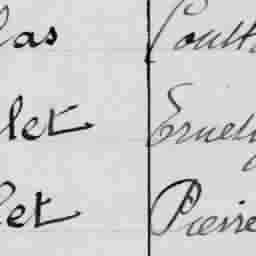 las Coult
let Ernest
let Pierre